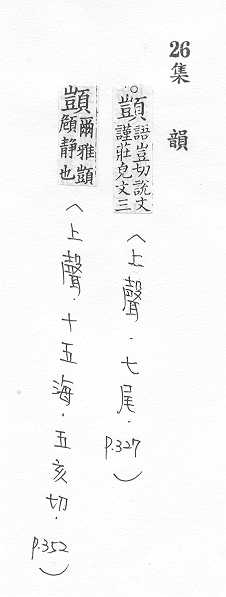 26 集韻
。顗語豈切說文謹莊皃文三〈上聲.七尾.P.327〉
顗爾雅顗頠静也〈上聲.十五海.五亥切.P.352〉